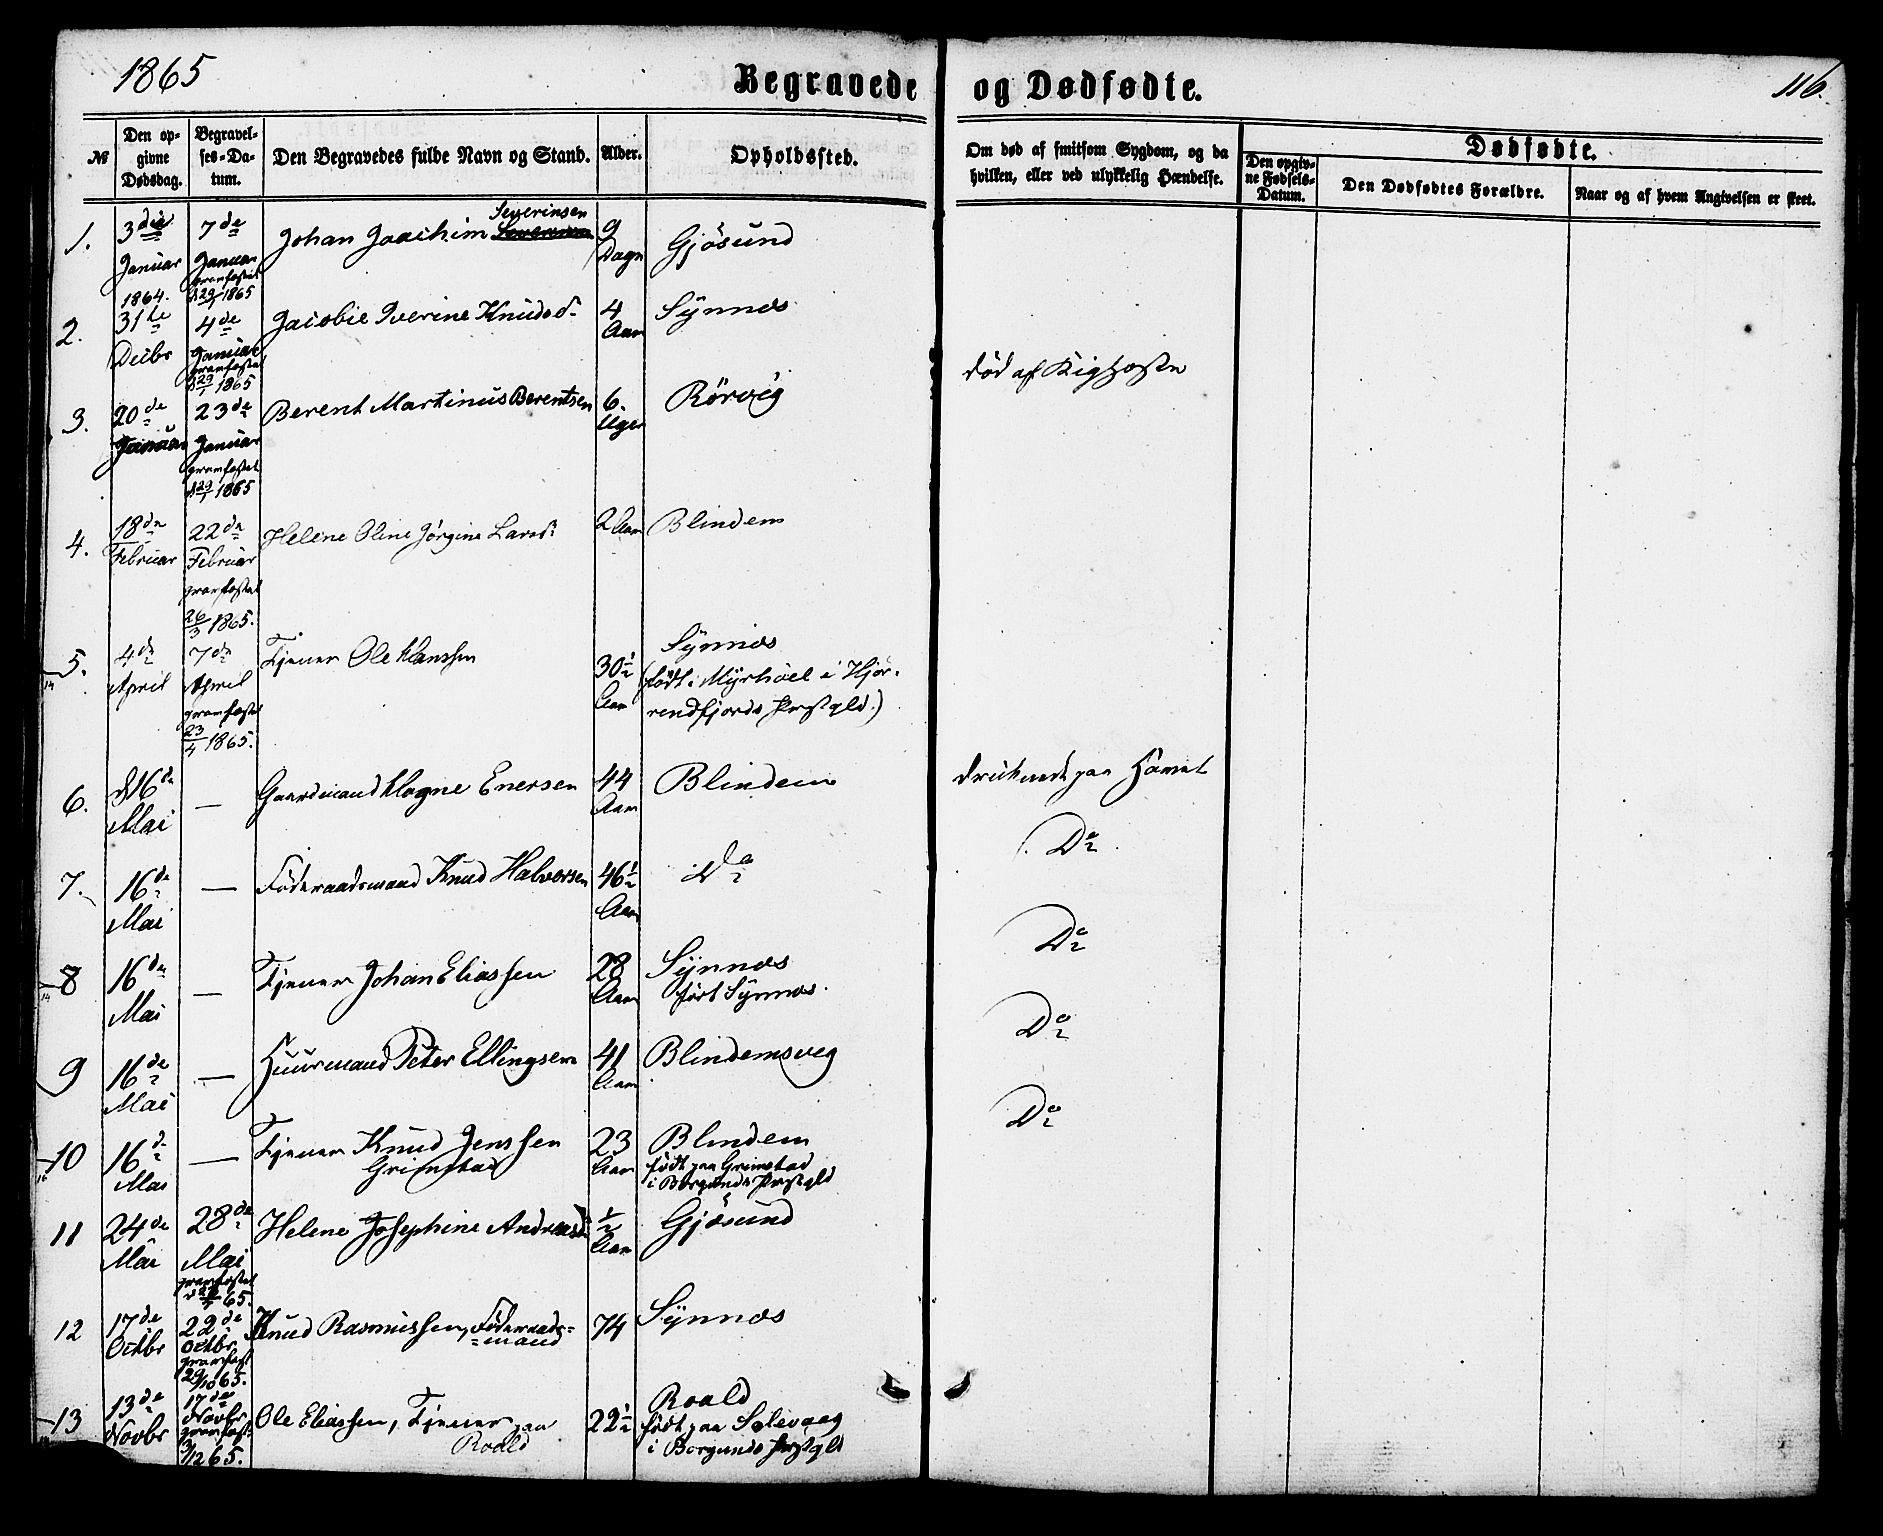 1865
Begravede og Dødfødte.
116.
№
Den op-
givne
Dødsdag.
Begravel-
ses-Da-
tum.
Den Begravedes fulde Navn og Stand.
Alder.
Opholdssted.
Om død af smitsom Sygdom, og da
hvilken, eller ved ulykkelig Hændelse.
Dødfødte.
Den opgiv-
ne Fødsels-
Datum.
Den Dødfødtes Forældre.
Naar og af hvem Angivelsen er skeet.
1.
3die
Januar
7de
Januar
gramfæstet
d 29/1 1865
Johan Joachim Severinsen
9
Dage
Gjøsund
2.
1864.
31te
Decbr
4de
Januar
gramfæstet
d 29/1 1865
Jacobie Iverine Knudsd.
4
Aar
Synnes
3.
20de
Januar
23de
Januar
gramfæstet
d 29/1 1865
Berent Martinus Berentsen
6.
Uger
Rørvig
død af Kighoste
4.
18de
Februar
22de
Februar
gramfæstet
26/3 1865.
Helene Oline Jørgine Larsd.
2 Aar
Blindem
5.
14
4de
April
7de
April
gramfæstet
23/4 1865.
Tjener Ole Hanssen
30½
Aar
Synnes
(født i Myrhoel i Hjør-
rendfjords Præstgld.)
6.
d 16de
Mai
—
Gaardmand Mogne Enersen
44
Aar
Blindem
druknede paa Havet
7.
16de
Mai
—
Føderaadsmand Knud Halvorsen
46½
Aar
do
Do
8
14
16de
Mai
—
Tjener Johan Eliassen
28
Aar
Synnes
født Synnes.
Do
9
16de
Mai
—
Huusmand Peter Ellingsen
41
Aar
Blindemsveg
Do
10
16
16de
Mai
—
Tjener Knud Jenssen
Grimstad
23
Aar
Blindem
født paa Grimstad
i Borgunds Præstgld
Do
11
24de
Mai
28de
Mai
gramfæstet
65.
Helene Josephine Andreasd.
½
Aar
Gjøsund
12
17de
Octbr
22de
Octbr.
gramfæst
29/10 65.
Knud Rasmussen, Føderaads-
=mand
74
Synnes
13
13de
Novbr
17de
Novbr.
gramfæst.
3/12 65.
Ole Eliassen, Tjener paa
Roald
22½
Roald
født paa Solevaag
i Borgunds Præstgld